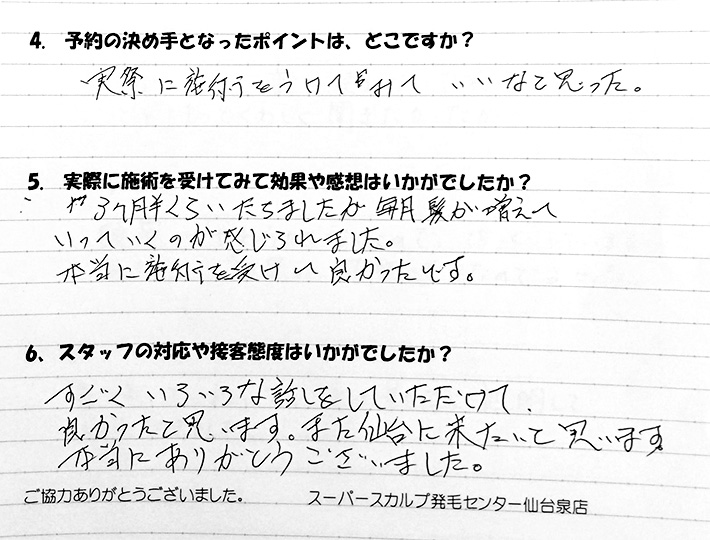 4. 予約の決め手となったポイントは、どこですか？
実際に施術をうけてみて いいなと思った。
5. 実際に施術を受けてみて効果や感想はいかがでしたか？
3ヶ月半くらいたちましたが 毎月髪が増えて
いっていくのが感じられました。
本当に施術を受けて良かったです。
6、スタッフの対応や接客態度はいかがでしたか？
すごく いろいろな話しをしていただけて、
良かったと思います。また仙台に来たいと思います。
本当にありがとうございました。
ご協力ありがとうございました。 スーパースカルプ発毛センター仙台泉店